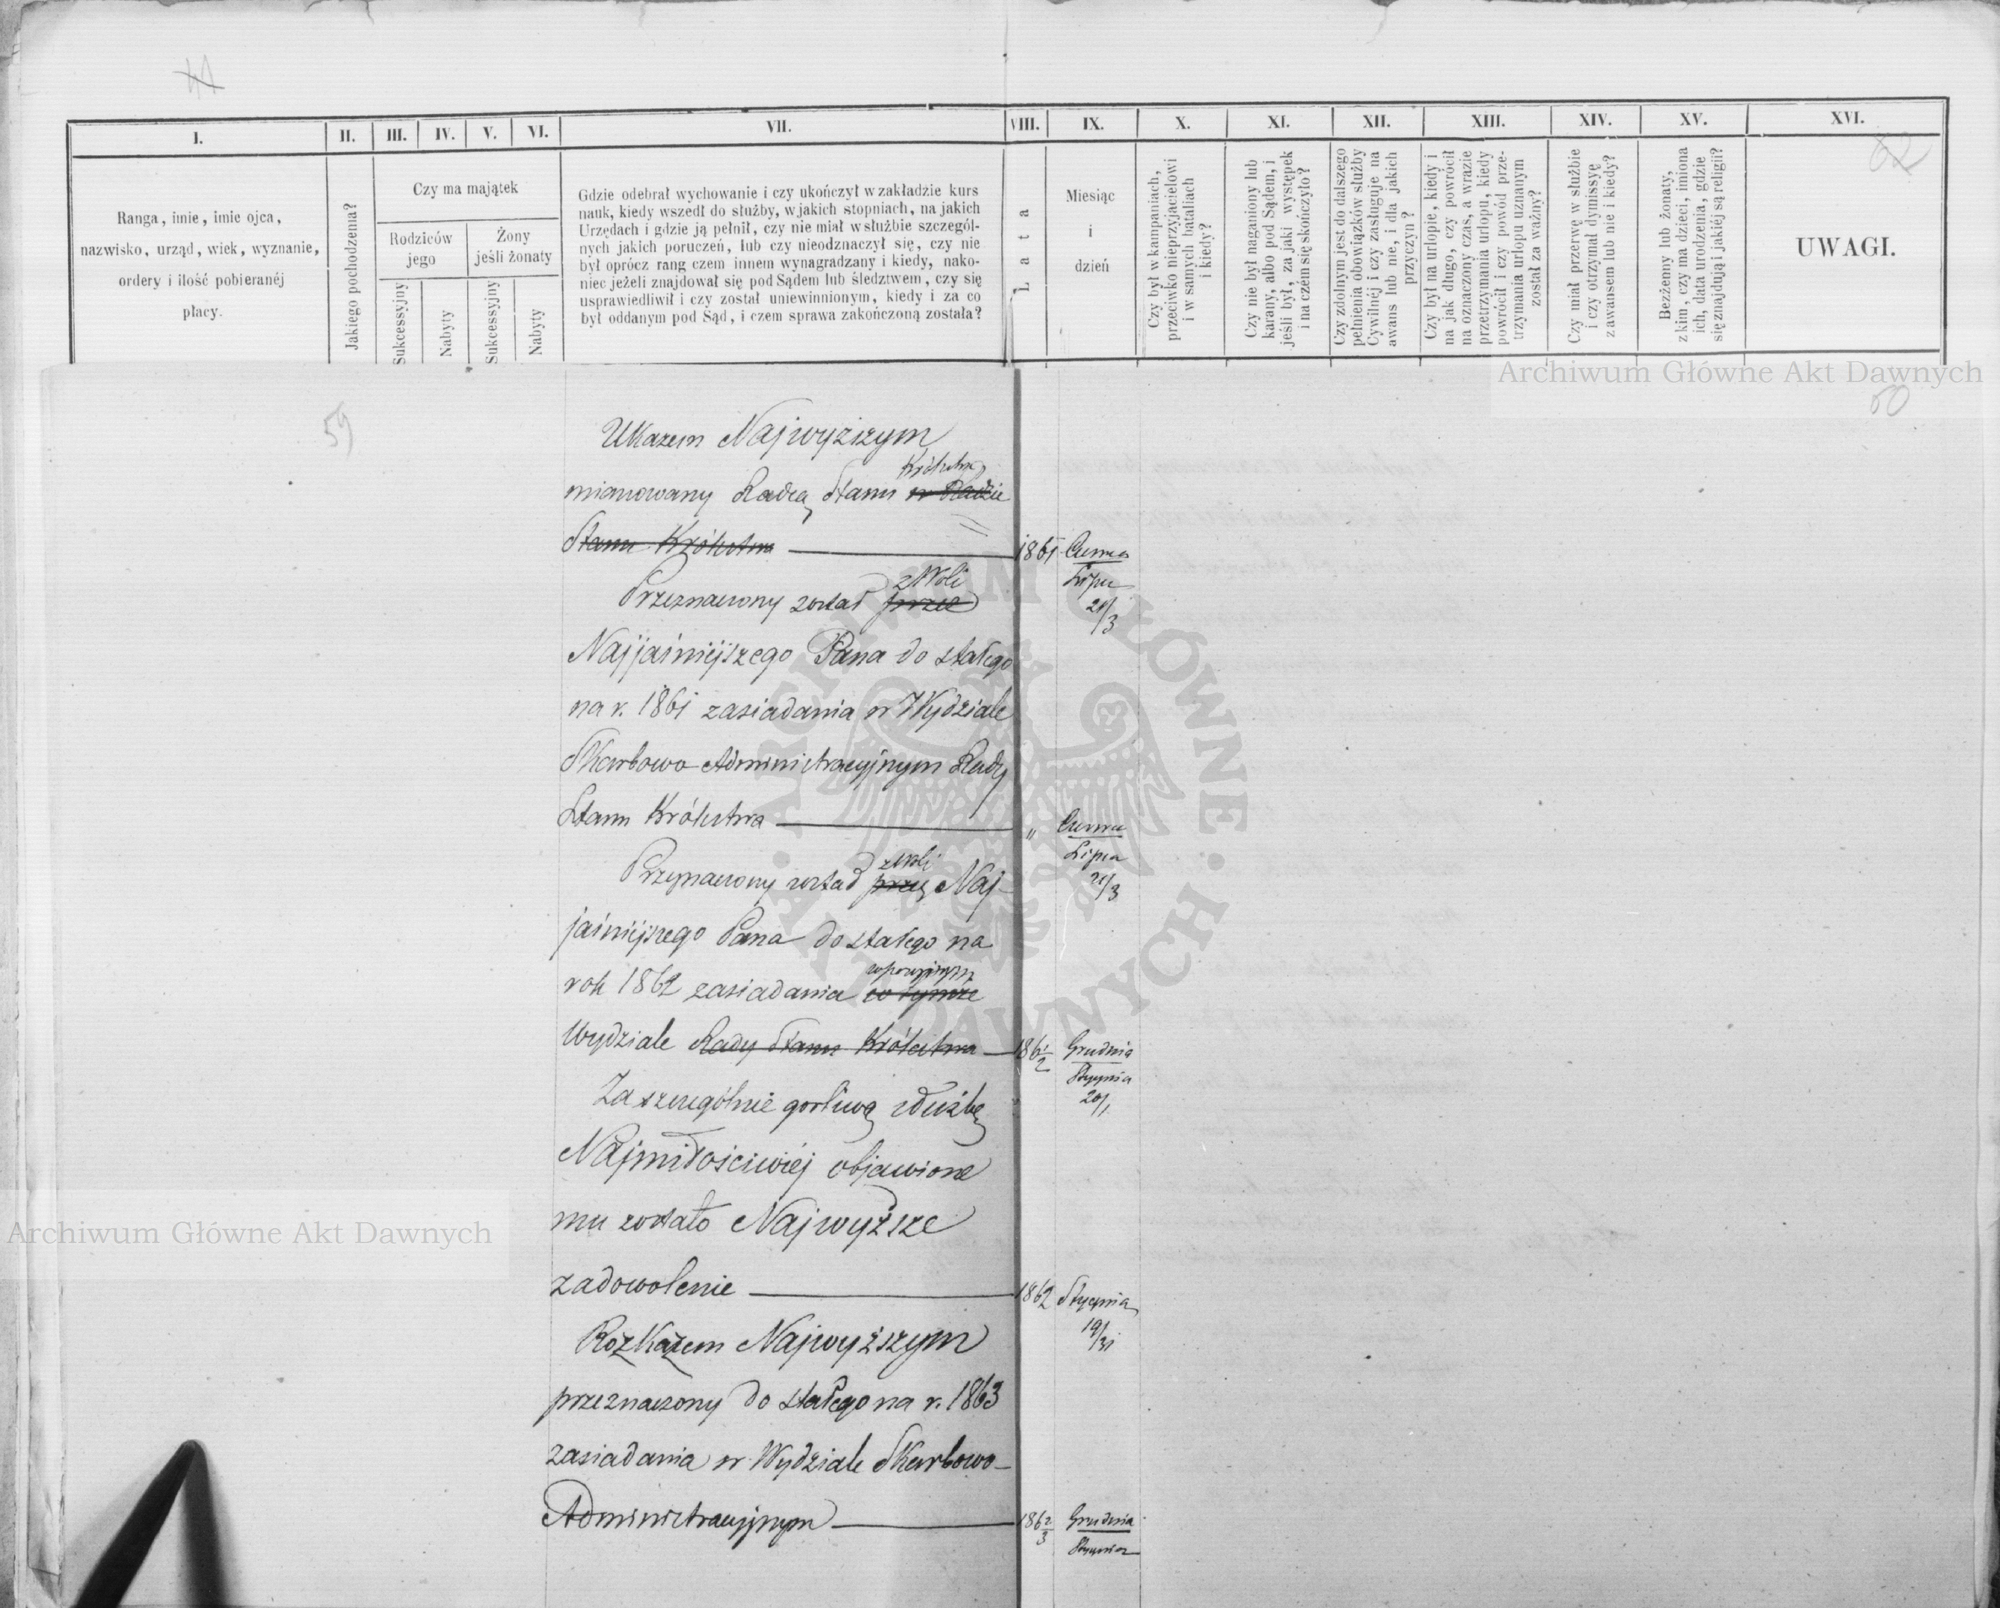 44
I. II. III. IV. V. VI. VII. VIII. IX. X. XI. XII. XIII. XIV. XV. XVI.
62
Ranga, imie, imie ojca,
nazwisko, urząd, wiek, wyznanie,
ordery i ilość pobieranéj
płacy.
Jakiego pochodzenia?
Czy ma majątek
Rodziców
jego
Żony
jeśli żonaty
Sukcessyjny
Nabyty
Sukcessyjny
Nabyty
Gdzie odebrał wychowanie i czy ukończył w zakładzie kurs
nauk, kiedy wszedł do służby, w jakich stopniach, na jakich
Urzędach i gdzie ją pełnił, czy nie miał w służbie szczegól-
nych jakich poruczeń, lub czy nieodznaczył się, czy nie
był oprócz rang czem innem wynagradzany i kiedy, nako-
niec jeżeli znajdował się pod Sądem lub śledztwem, czy się
usprawiedliwił i czy został uniewinnionym, kiedy i za co
był oddanym pod Sąd, i czem sprawa zakończoną została?
Lata
Miesiąc
i
dzień
Czy był w kampaniach,
przeciwko nieprzyjacielowi
i w samych bataliach
i kiedy?
Czy nie był naganiony lub
karany, albo pod Sądem, i
jeśli był, za jaki występek
i na czem się skończyło?
Czy zdolnym jest do dalszego
pełnienia obowiązków służby
Cywilnéj i czy zasługuje na
awans lub nie, i dla jakich
przyczyn?
Czy był na urlopie, kiedy i
na jak długo, czy powrócił
na oznaczony czas, a w razie
przetrzymania urlopu, kiedy
powrócił i czy powód prze-
trzymania urlopu uznanym
został za ważny?
Czy miał przerwę w służbie
i czy otrzymał dymissyę
z awansem lub nie i kiedy?
Bezżenny lub żonaty,
z kim, czy ma dzieci, imiona
ich, data urodzenia, gdzie
się znajdują i jakiéj są religii?
UWAGI.
Archiwum Główne Akt Dawnych
59
60
Ukazem Najwyższym
Królestwa
mianowany Radcą Stanu w Radzie
Stanu Królestwa 1861 Czerwca
Lipca
21/3
z Woli
Przeznaczony został przez
Najjaśniejszego Pana do stałego
na r. 1861 zasiadania w Wydziale
Skarbowo Administracyjnym Rady
Stanu Królestwa " Czerwca
Lipca
21/3
z Woli
Przeznaczony został przez Naj-
jaśniejszego Pana do stałego na
rok 1862 zasiadania co tymże
Wydziale Rady Stanu Królestwa 1861/2 Grudnia
Stycznia
20/1
Za szczególnie gorliwą służbę
Najmiłościwiéj objawione
mu zostało Najwyższe
zadowolenie 1862 Stycznia
19/31
Rozkazem Najwyższym
przeznaczony do stałego na r. 1863
zasiadania w Wydziale Skarbowo-
Administracyjnym 1862/3 Grudnia
Stycznia
Archiwum Główne Akt Dawnych
ARCHIWUM GŁÓWNE AKT DAWNYCH